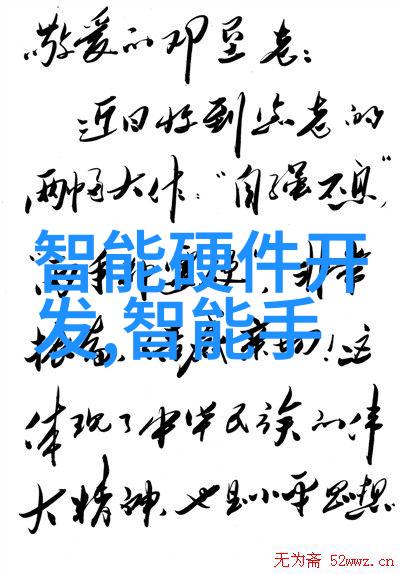 敬爱的邓垦老:
近日收到您老的
两幅大作:“自强不息”
智能硬件开
发,智能手
振奋
!这
体现了中华民族的伟
大精神,也是小平思想
无为斋 52wwz.cn